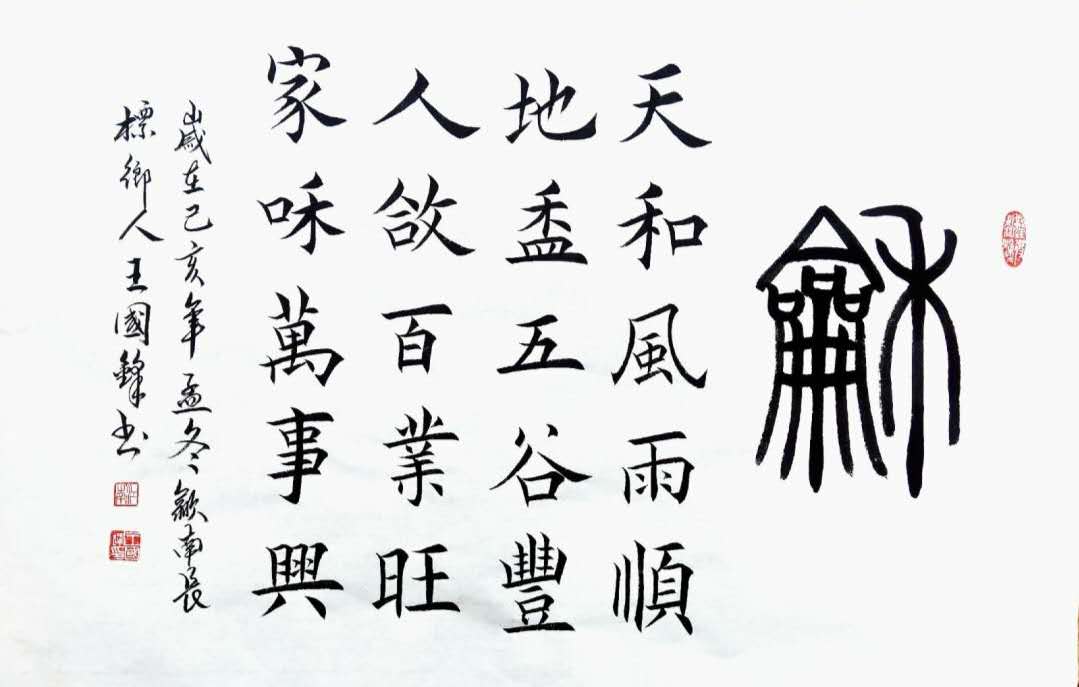 龢
天和風雨順
地盉五谷豐
人敆百業旺
家咊萬事興
歲在己亥年孟冬歙南長
標鄉人王國鋒书